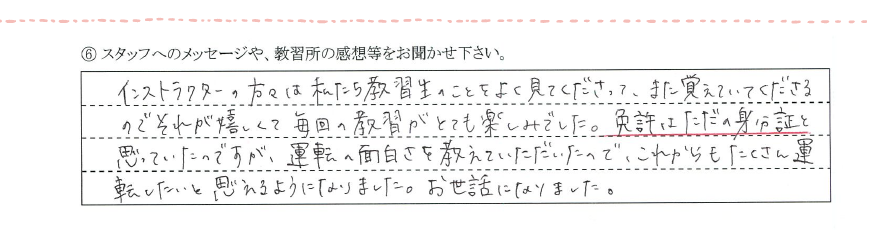 ⑥ スタッフへのメッセージや、教習所の感想等をお聞かせ下さい。
インストラクターの方々は私たち教習生のことをよく見てくださって、また覚えていてくださる
のでそれが嬉しくて毎回の教習がとても楽しみでした。免許はただの身分証と
思っていたのですが、運転の面白さを教えていただいたので、これからもたくさん運
転したいと思えるようになりました。お世話になりました。